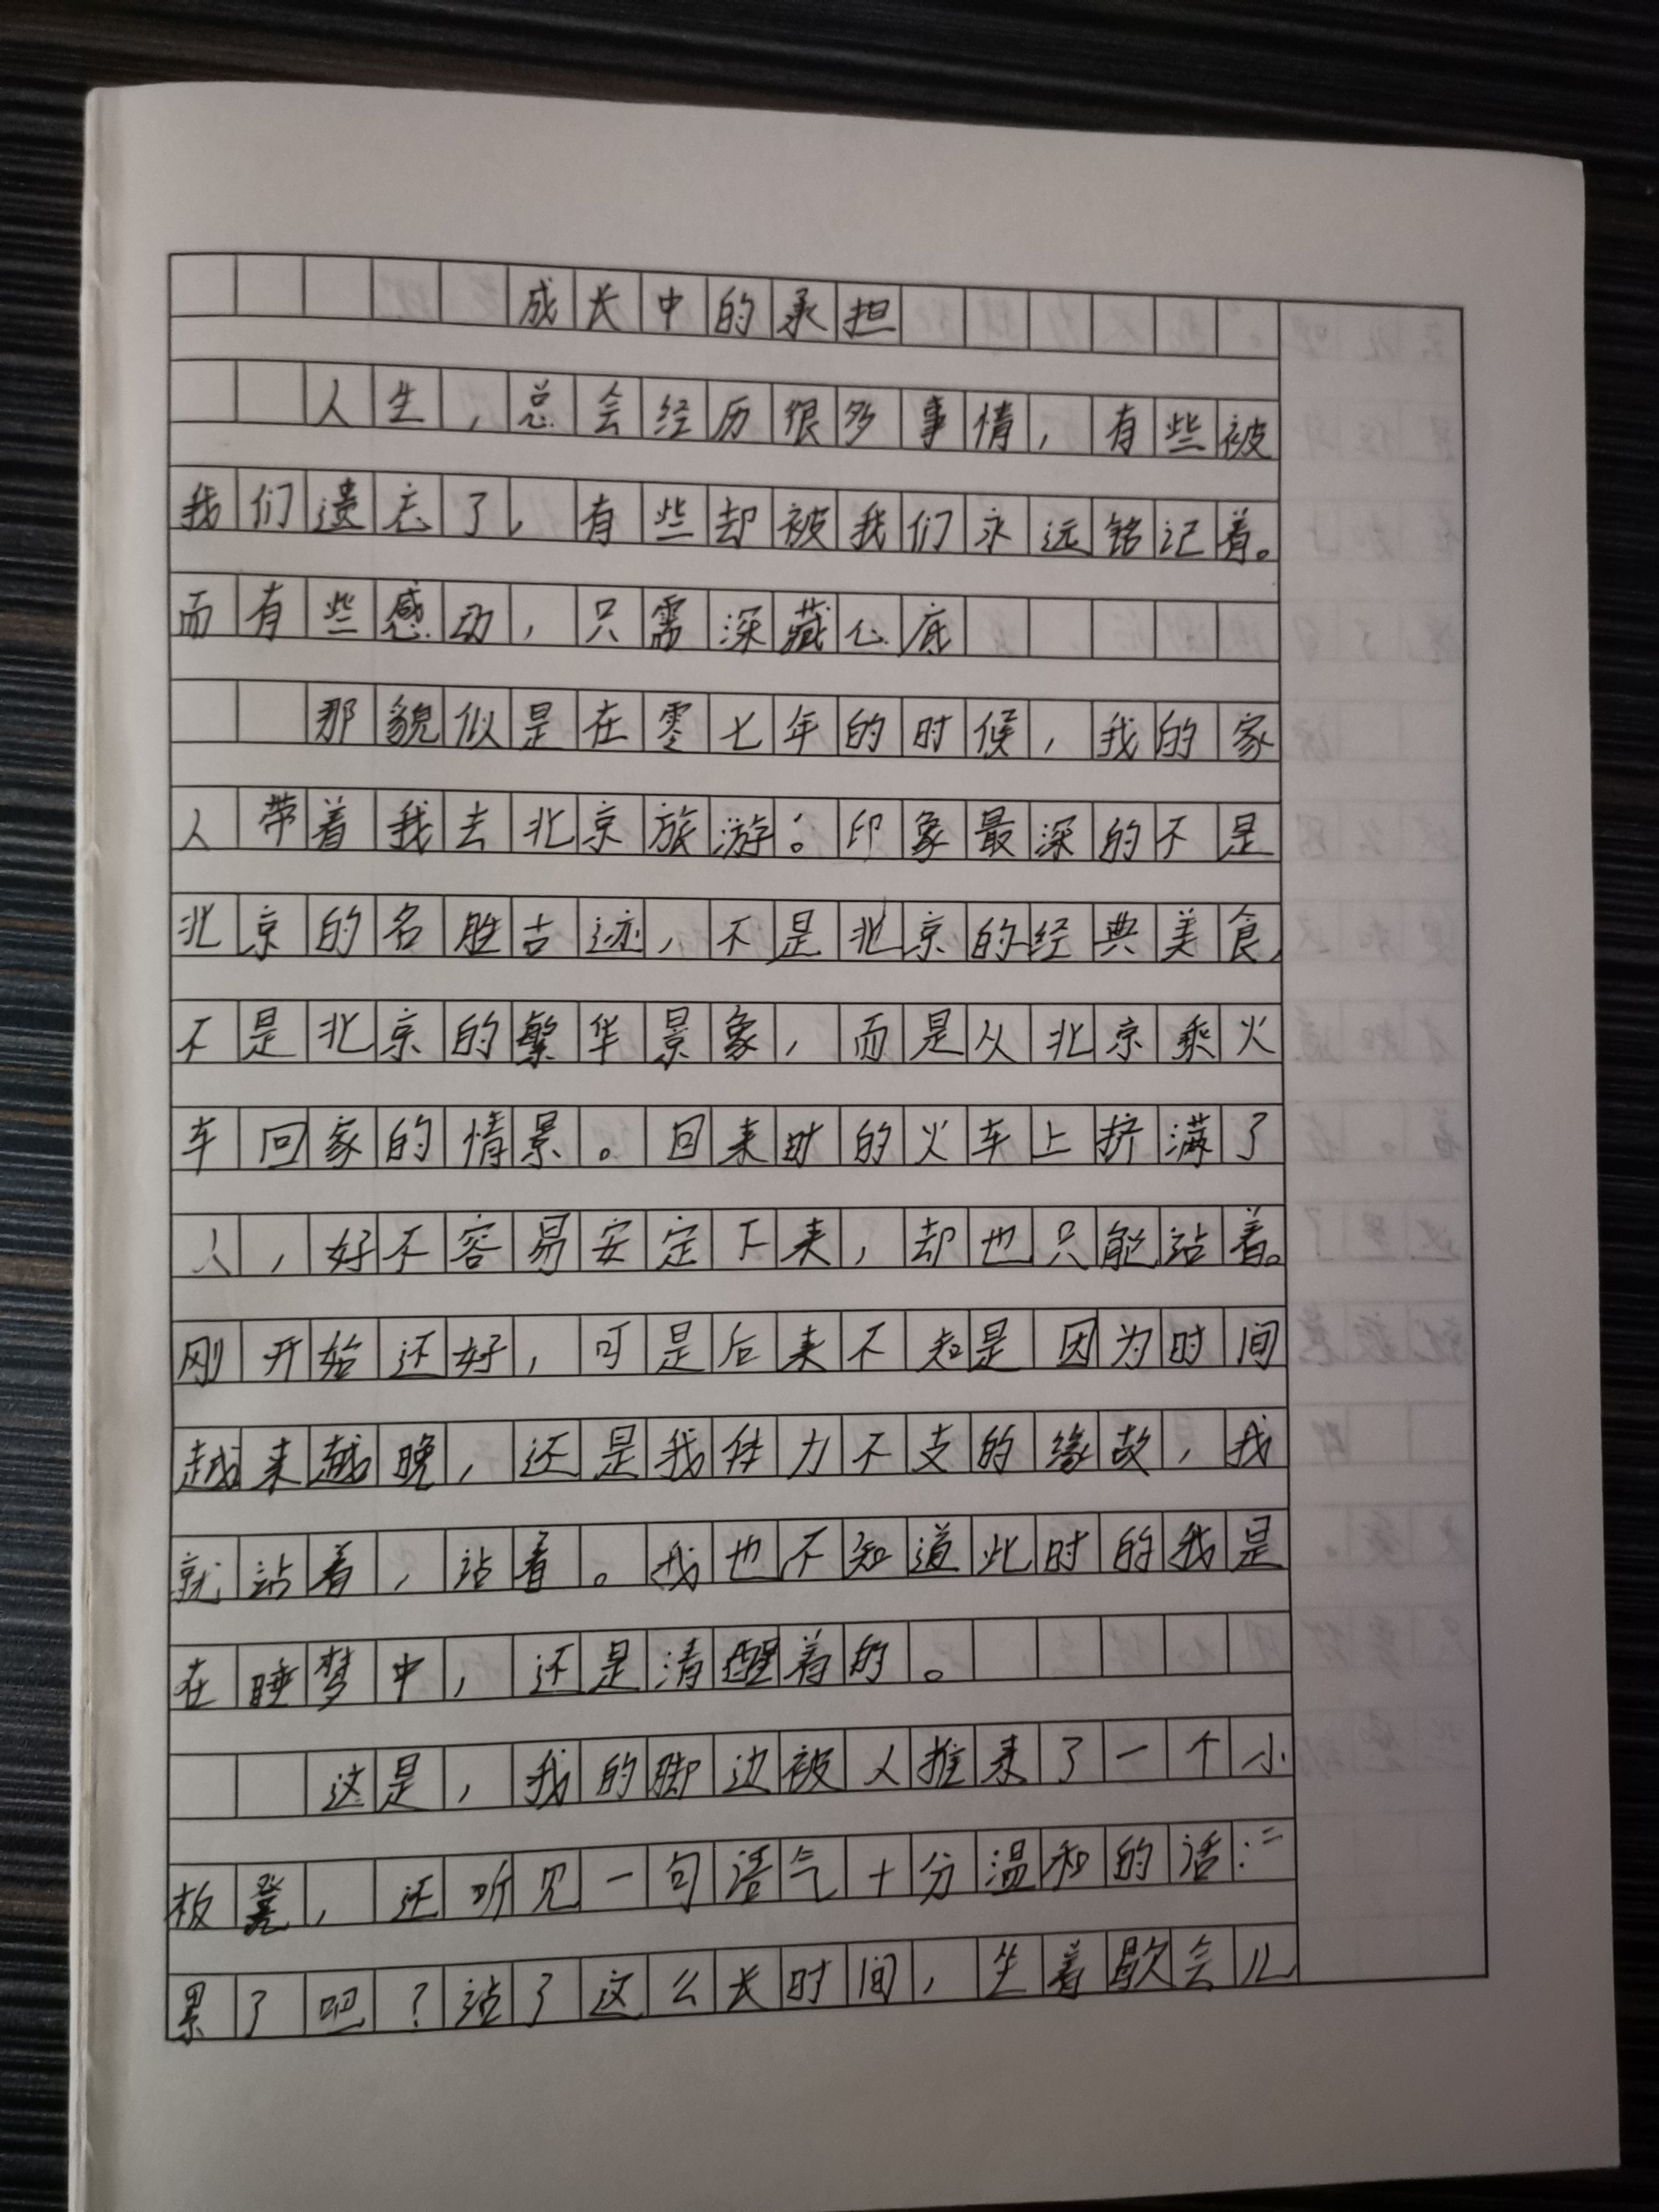 成长中的承担
人生，总会经历很多事情，有些被
我们遗忘了，有些却被我们永远铭记着。
而有些感动，只需深藏心底
那貌似是在零七年的时候，我的家
人带着我去北京旅游。印象最深的不是
北京的名胜古迹，不是北京的经典美食，
不是北京的繁华景象，而是从北京乘火
车回家的情景。回来时的火车上挤满了
人，好不容易安定下来，却也只能站着。
刚开始还好，可是后来不知是因为时间
越来越晚，还是我体力不支的缘故，我
就站着，站着。我也不知道此时的我是
在睡梦中，还是清醒着的。
这是，我的脚边被人推来了一个小
板凳，还听见一句语气十分温和的话：“
累了吧？站了这么长时间，坐着歇会儿